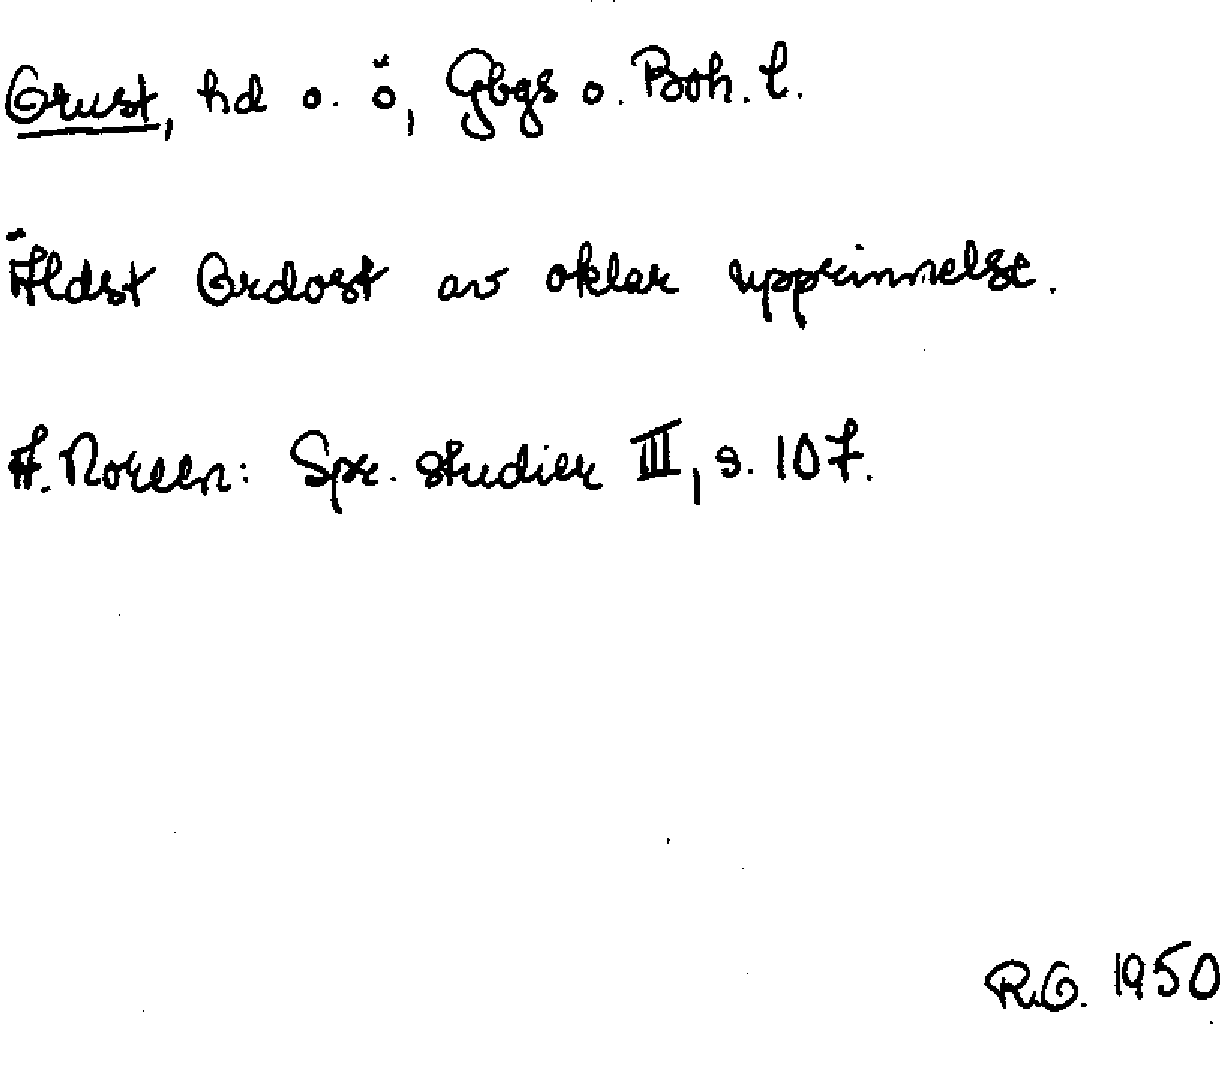 Orust, hd o. ö, Gbgs o. Boh. l.
Äldst Ordost av oklar upprinnelse.
A. Noreen: Spr. studier III, s. 107.
R.O. 1950